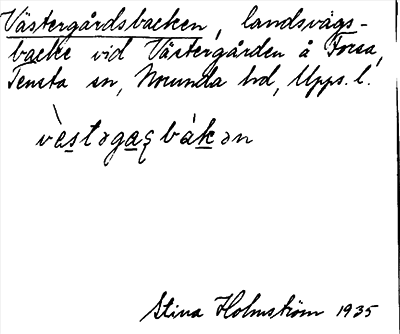 Västergårdsbacken, landsvägs-
backe vid Västergården å Forsa,
Tensta sn, Norunda hd, Upps. l.
Stina Holmström 1935